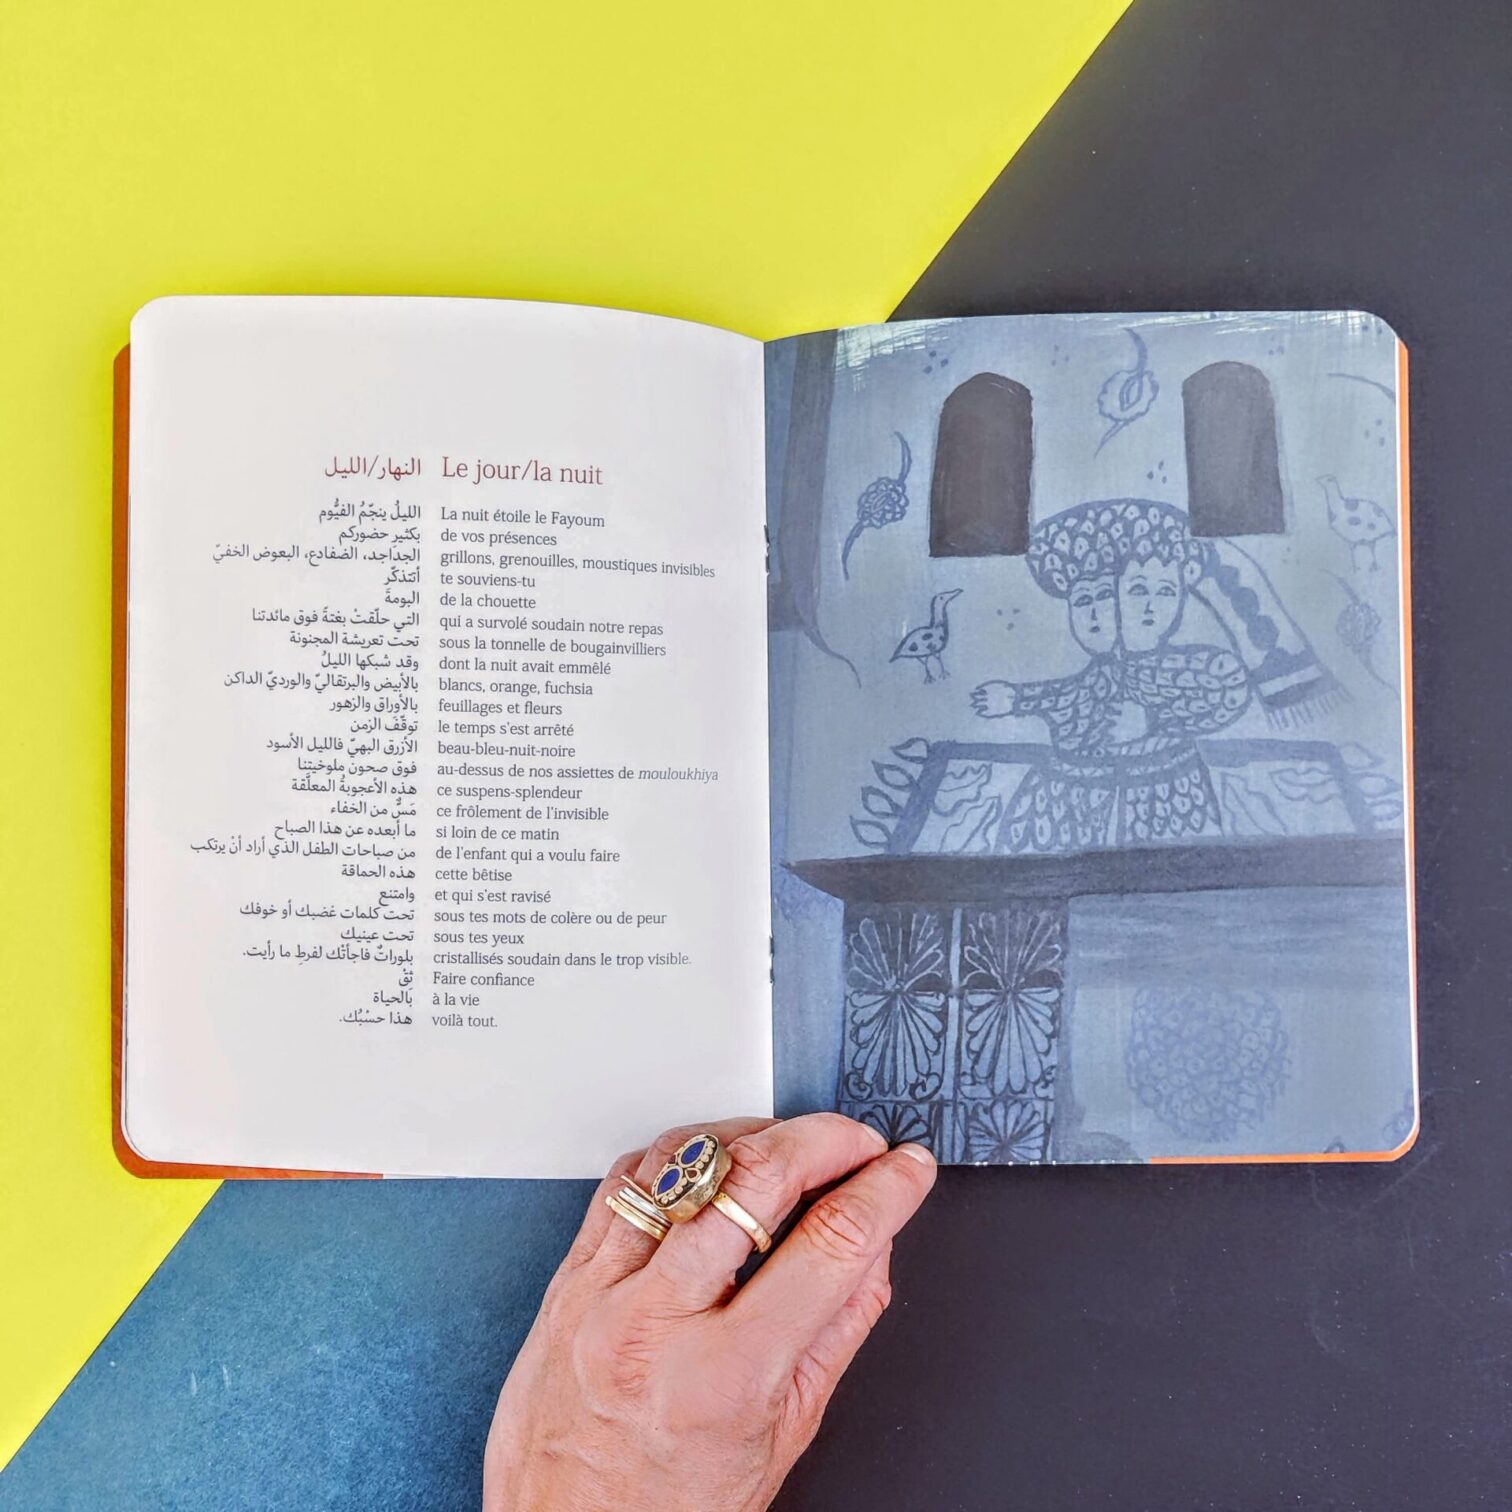 النهار/الليل
الليلُ ينجّمُ الفيُّوم
بكثيرِ حضوركم
الجداجد، الضفادع، البعوض الخفيّ
أتتذكّر
البومةَ
التي حلّقتْ بغتةً فوق مائدتنا
تحت تعريشة المجنونة
وقد شبكها الليلُ
بالأبيض والبرتقاليّ والورديّ الداكن
بالأوراق والزهور
توقّفَ الزمن
الأزرق البهيّ فالليل الأسود
فوق صحون ملوخيتنا
هذه الأعجوبةُ المعلَّقة
مَسٌّ من الخفاء
ما أبعده عن هذا الصباح
من صباحات الطفل الذي أراد أنْ يرتكب
هذه الحماقة
وامتنع
تحت كلمات غضبك أو خوفك
تحت عينيك
بلوراتٌ فاجأتْك لفرطِ ما رأيت.
ثِقْ
بالحياة
هذا حسْبُك.
Le jour/la nuit
La nuit étoile le Fayoum
de vos présences
grillons, grenouilles, moustiques invisibles
te souviens-tu
de la chouette
qui a survolé soudain notre repas
sous la tonnelle de bougainvilliers
dont la nuit avait emmêlé
blancs, orange, fuchsia
feuillages et fleurs
le temps s'est arrêté
beau-bleu-nuit-noire
au-dessus de nos assiettes de mouloukhiya
ce suspens-splendeur
ce frôlement de l'invisible
si loin de ce matin
de l'enfant qui a voulu faire
cette bêtise
et qui s'est ravisé
sous tes mots de colère ou de peur
sous tes yeux
cristallisés soudain dans le trop visible.
Faire confiance
à la vie
voilà tout.